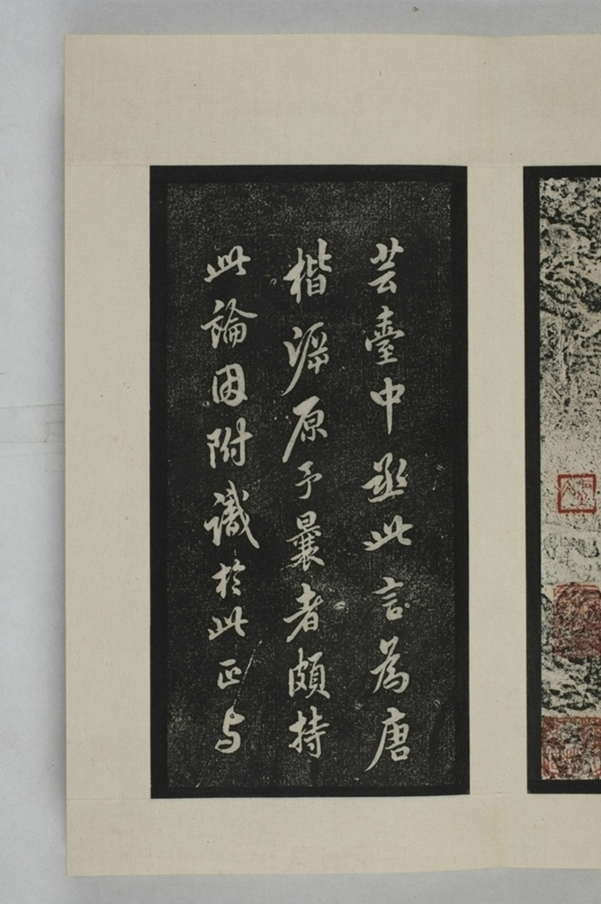 芸臺中丞此言為唐
楷溯原予曩者頗持
此論因附識於此正与